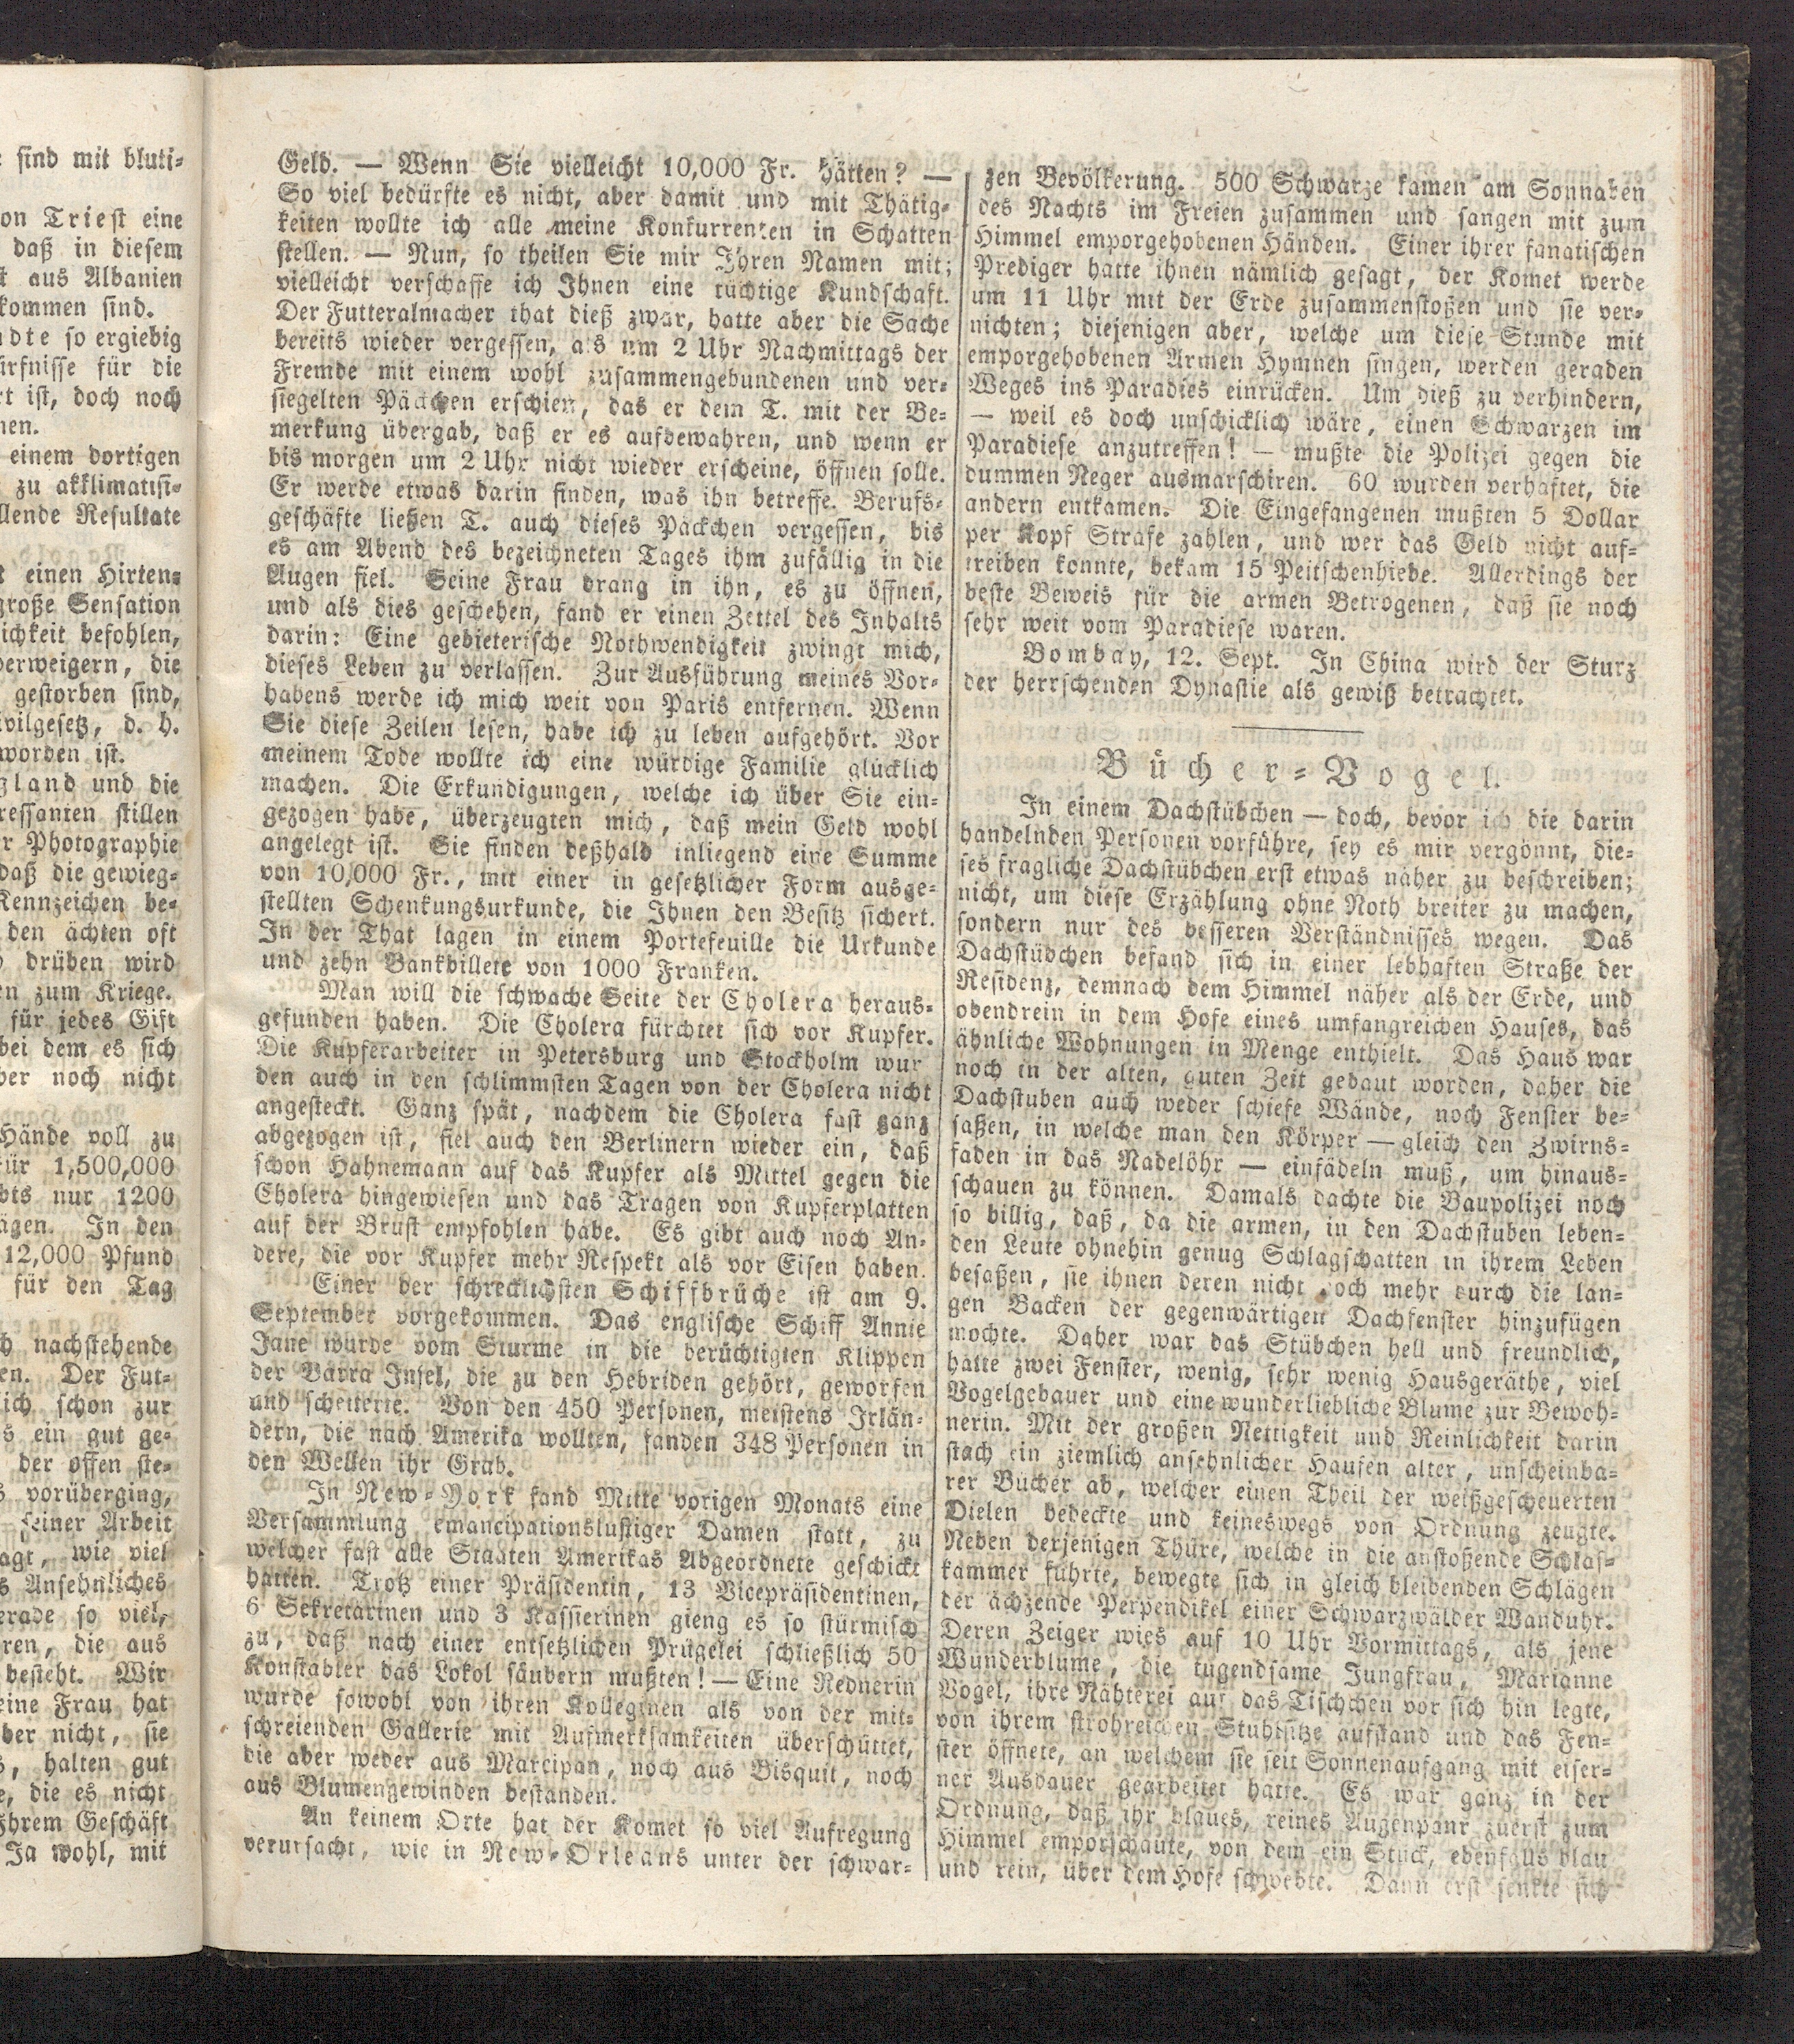 sind mit bluti-
on Triest eine
daß in diesem
aus Albanien
kommen sind.
dte so ergiebig
ürfnisse für die
rt ist, doch noch
nen.
einem dortigen
zu akklimatisi-
llende Resultate
einen Hirten-
große Sensation
ichkeit befohlen,
verweigern, die
gestorben sind,
ivilgesetz, d. h.
worden ist.
gland und die
ressanten stillen
r Photographie
daß die gewieg-
Kennzeichen be-
den ächten oft
drüben wird
en zum Kriege.
für jedes Gift
bei dem es sich
ber noch nicht
Hände voll zu
für 1,500,000
bts nur 1200
ägen. In den
12,000 Pfund
für den Tag
ch nachstehende
en. Der Fut-
sich schon zur
s ein gut ge-
der offen ste-
s vorüberging,
seiner Arbeit
agt, wie viel
s Ansehnliches
erade so viel,
ren, die aus
besteht. Wir
eine Frau hat
ber nicht, sie
s, halten gut
e, die es nicht
Ihrem Geschäft
Ja wohl, mit
Geld. — Wenn Sie vielleicht 10,000 Fr. hätten? —
So viel bedürfte es nicht, aber damit und mit Thätig-
keiten wollte ich alle meine Konkurrenten in Schatten
stellen. — Nun, so theilen Sie mir Ihren Namen mit;
vielleicht verschaffe ich Ihnen eine tüchtige Kundschaft.
Der Futteralmacher that dieß zwar, hatte aber die Sache
bereits wieder vergessen, als um 2 Uhr Nachmittags der
Fremde mit einem wohl zusammengebundenen und ver-
siegelten Päckchen erschien, das er dem T. mit der Be-
merkung übergab, daß er es aufbewahren, und wenn er
bis morgen um 2 Uhr nicht wieder erscheine, öffnen solle.
Er werde etwas darin finden, was ihn betreffe. Berufs-
geschäfte ließen T. auch dieses Päckchen vergessen, bis
es am Abend des bezeichneten Tages ihm zufällig in die
Augen fiel. Seine Frau drang in ihn, es zu öffnen,
und als dies geschehen, fand er einen Zettel des Inhalts
darin: Eine gebieterische Nothwendigkeit zwingt mich,
dieses Leben zu verlassen. Zur Ausführung meines Vor-
habens werde ich mich weit von Paris entfernen. Wenn
Sie diese Zeilen lesen, habe ich zu leben aufgehört. Vor
meinem Tode wollte ich eine würdige Familie glücklich
machen. Die Erkundigungen, welche ich über Sie ein-
gezogen habe, überzeugten mich, daß mein Geld wohl
angelegt ist. Sie finden deßhalb inliegend eine Summe
von 10,000 Fr., mit einer in gesetzlicher Form ausge-
stellten Schenkungsurkunde, die Ihnen den Besitz sichert.
In der That lagen in einem Portefeuille die Urkunde
und zehn Bankbillete von 1000 Franken.
Man will die schwache Seite der Cholera heraus-
gefunden haben. Die Cholera fürchtet sich vor Kupfer.
Die Kupferarbeiter in Petersburg und Stockholm wur
den auch in den schlimmsten Tagen von der Cholera nicht
angesteckt. Ganz spät, nachdem die Cholera fast ganz
abgezogen ist, fiel auch den Berlinern wieder ein, daß
schon Hahnemann auf das Kupfer als Mittel gegen die
Cholera hingewiesen und das Tragen von Kupferplatten
auf der Brust empfohlen habe. Es gibt auch noch An-
dere, die vor Kupfer mehr Respekt als vor Eisen haben.
Einer der schrecklichsten Schiffbrüche ist am 9.
September vorgekommen. Das englische Schiff Annie
Jane wurde vom Sturme in die berüchtigten Klippen
der Barra Insel, die zu den Hebriden gehört, geworfen
und scheiterte. Von den 450 Personen, meistens Irlän-
dern, die nach Amerika wollten, fanden 348 Personen in
den Wellen ihr Grab.
In New-York fand Mitte vorigen Monats eine
Versammlung emancipationslustiger Damen statt, zu
welcher fast alle Staaten Amerikas Abgeordnete geschickt
hatten. Trotz einer Präsidentin, 13 Vicepräsidentinen,
6 Sekretärinen und 3 Kassierinen gieng es so stürmisch
zu, daß nach einer entsetzlichen Prügelei schließlich 50
Konstabler das Lokol säubern mußten! — Eine Rednerin
wurde sowohl von ihren Kolleginen als von der mit-
schreienden Gallerie mit Aufmerksamkeiten überschüttet,
die aber weder aus Marcipan, noch aus Bisquit, noch
aus Blumengewinden bestanden.
An keinem Orte hat der Komet so viel Aufregung
verursacht, wie in New-Orleans unter der schwar-
zen Bevölkerung. 500 Schwarze kamen am Sonnaben
des Nachts im Freien zusammen und sangen mit zum
Himmel emporgehobenen Händen. Einer ihrer fanatischen
Prediger hatte ihnen nämlich gesagt, der Komet werde
um 11 Uhr mit der Erde zusammenstoßen und sie ver-
nichten; diejenigen aber, welche um diese Stunde mit
emporgehobenen Armen Hymnen singen, werden geraden
Weges ins Paradies einrücken. Um dieß zu verhindern,
— weil es doch unschicklich wäre, einen Schwarzen im
Paradiese anzutreffen! — mußte die Polizei gegen die
dummen Neger ausmarschiren. 60 wurden verhaftet, die
andern entkamen. Die Eingefangenen mußten 5 Dollar
per Kopf Strafe zahlen, und wer das Geld nicht auf-
treiben konnte, bekam 15 Peitschenhiebe. Allerdings der
beste Beweis für die armen Betrogenen, daß sie noch
sehr weit vom Paradiese waren.
Bombay, 12. Sept. In China wird der Sturz
der herrschenden Dynastie als gewiß betrachtet.
Bücher-Vogel.
In einem Dachstübchen — doch, bevor ich die darin
handelnden Personen vorführe, sey es mir vergönnt, die-
ses fragliche Dachstübchen erst etwas näher zu beschreiben;
nicht, um diese Erzählung ohne Noth breiter zu machen,
sondern nur des besseren Verständnisses wegen. Das
Dachstübchen befand sich in einer lebhaften Straße der
Residenz, demnach dem Himmel näher als der Erde, und
obendrein in dem Hofe eines umfangreichen Hauses, das
ähnliche Wohnungen in Menge enthielt. Das Haus war
noch in der alten, guten Zeit gebaut worden, daher die
Dachstuben auch weder schiefe Wände, noch Fenster be-
saßen, in welche man den Körper — gleich den Zwirns-
faden in das Nadelöhr — einfädeln muß, um hinaus-
schauen zu können. Damals dachte die Baupolizei noch
so billig, daß, da die armen, in den Dachstuben leben-
den Leute ohnehin genug Schlagschatten in ihrem Leben
besaßen, sie ihnen deren nicht noch mehr durch die lan-
gen Backen der gegenwärtigen Dachfenster hinzufügen
mochte. Daher war das Stübchen hell und freundlich,
hatte zwei Fenster, wenig, sehr wenig Hausgeräthe, viel
Vogelgebauer und eine wunderliebliche Blume zur Bewoh-
nerin. Mit der großen Nettigkeit und Reinlichkeit darin
stach ein ziemlich ansehnlicher Haufen alter, unscheinba-
rer Bücher ab, welcher einen Theil der weißgescheuerten
Dielen bedeckte und keineswegs von Ordnung zeugte.
Neben derjenigen Thüre, welche in die anstoßende Schlaf-
kammer führte, bewegte sich in gleich bleibenden Schlägen
der ächzende Perpendikel einer Schwarzwälder Wanduhr.
Deren Zeiger wies auf 10 Uhr Vormittags, als jene
Wunderblume, die tugendsame Jungfrau, Marianne
Vogel, ihre Nähterei auf das Tischchen vor sich hin legte,
von ihrem strohreichen Stuhlsitze aufstand und das Fen-
ster öffnete, an welchem sie seit Sonnenaufgang mit eiser-
ner Ausdauer gearbeitet hatte. Es war ganz in der
Ordnung, daß ihr blaues, reines Augenpaar zuerst zum
Himmel emporschaute, von dem ein Stück, ebenfalls blau
und rein, über dem Hofe schwebte. Dann erst senkte sich